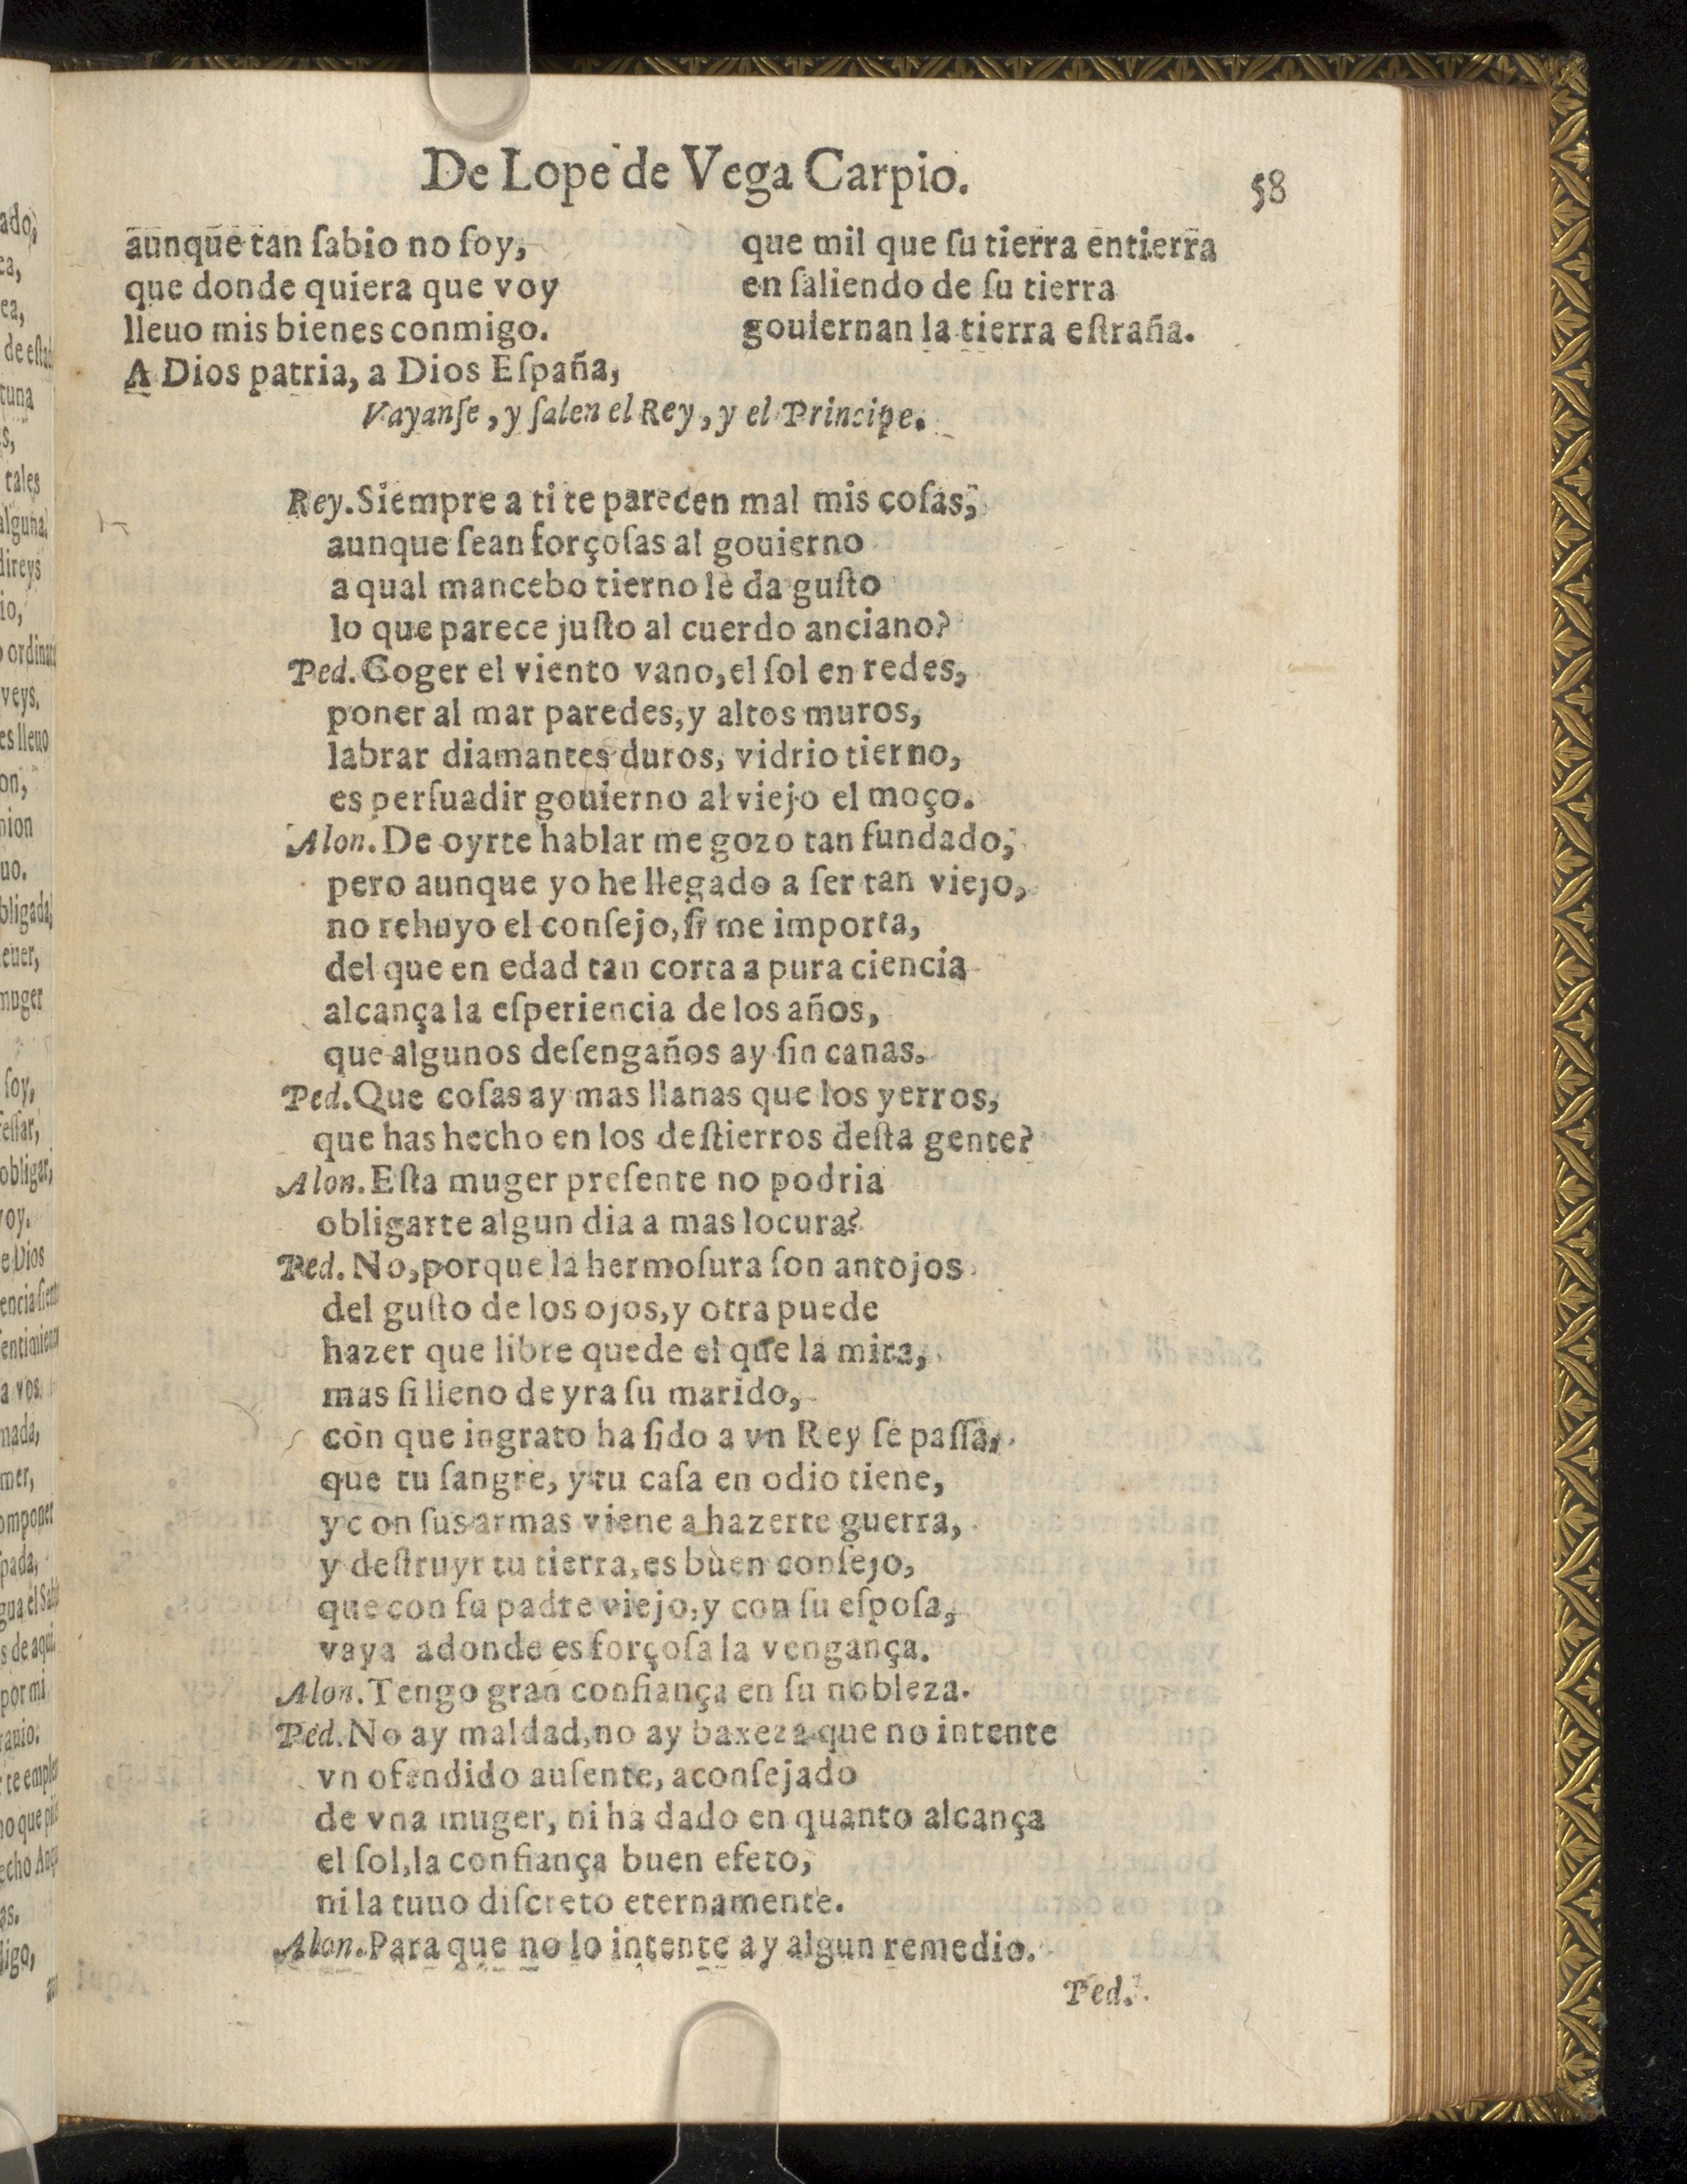 De Lope de Vega Carpio.
58
aunque tan ſabio no ſoy,
que donde quiera que voy
lleuo mis bienes conmigo.
A Dios patria, a Dios Eſpaña,
que mil que ſu tierra entierra
en ſaliendo de ſu tierra
gouiernan la tierra eſtraña.
Vayanſe, y ſalen el Rey, y el Principe.
Rey. Siempre a ti te parecen mal mis coſas,
aunque ſean forçoſas al gouierno
a qual mancebo tierno le da guſto
lo que parece juſto al cuerdo anciano?
Ped. Coger el viento vano, el ſol en redes,
poner al mar paredes, y altos muros,
labrar diamantes duros, vidrio tierno,
es perſuadir gouierno al viejo el moço.
Alon. De oyrte hablar me gozo tan fundado,
pero aunque yo he llegado a ſer tan viejo,
no rehuyo el conſejo, ſi me importa,
del que en edad tan corta a pura ciencia
alcança la eſperiencia de los años,
que algunos deſengaños ay ſin canas.
Ped. Que coſas ay mas llanas que los yerros,
que has hecho en los deſtierros deſta gente?
Alon. Eſta muger preſente no podria
obligarte algun dia a mas locura?
Ped. No, porque la hermoſura ſon antojos
del guſto de los ojos, y otra puede
hazer que libre quede el que la mira,
mas ſi lleno de yra ſu marido,
con que ingrato ha ſido a vn Rey ſe paſſa,
que tu ſangre, y tu caſa en odio tiene,
y con ſus armas viene a hazerte guerra,
y deſtruyr tu tierra, es buen conſejo,
que con ſu padre viejo, y con ſu eſpoſa,
vaya adonde es forçoſa la vengança.
Alon. Tengo gran confiança en ſu nobleza.
Ped. No ay maldad, no ay baxeza que no intente
vn ofendido auſente, aconſejado
de vna muger, ni ha dado en quanto alcança
el ſol, la confiança buen efeto,
ni la tuuo diſcreto eternamente.
Alon. Para que no lo intente ay algun remedio.
Ped.